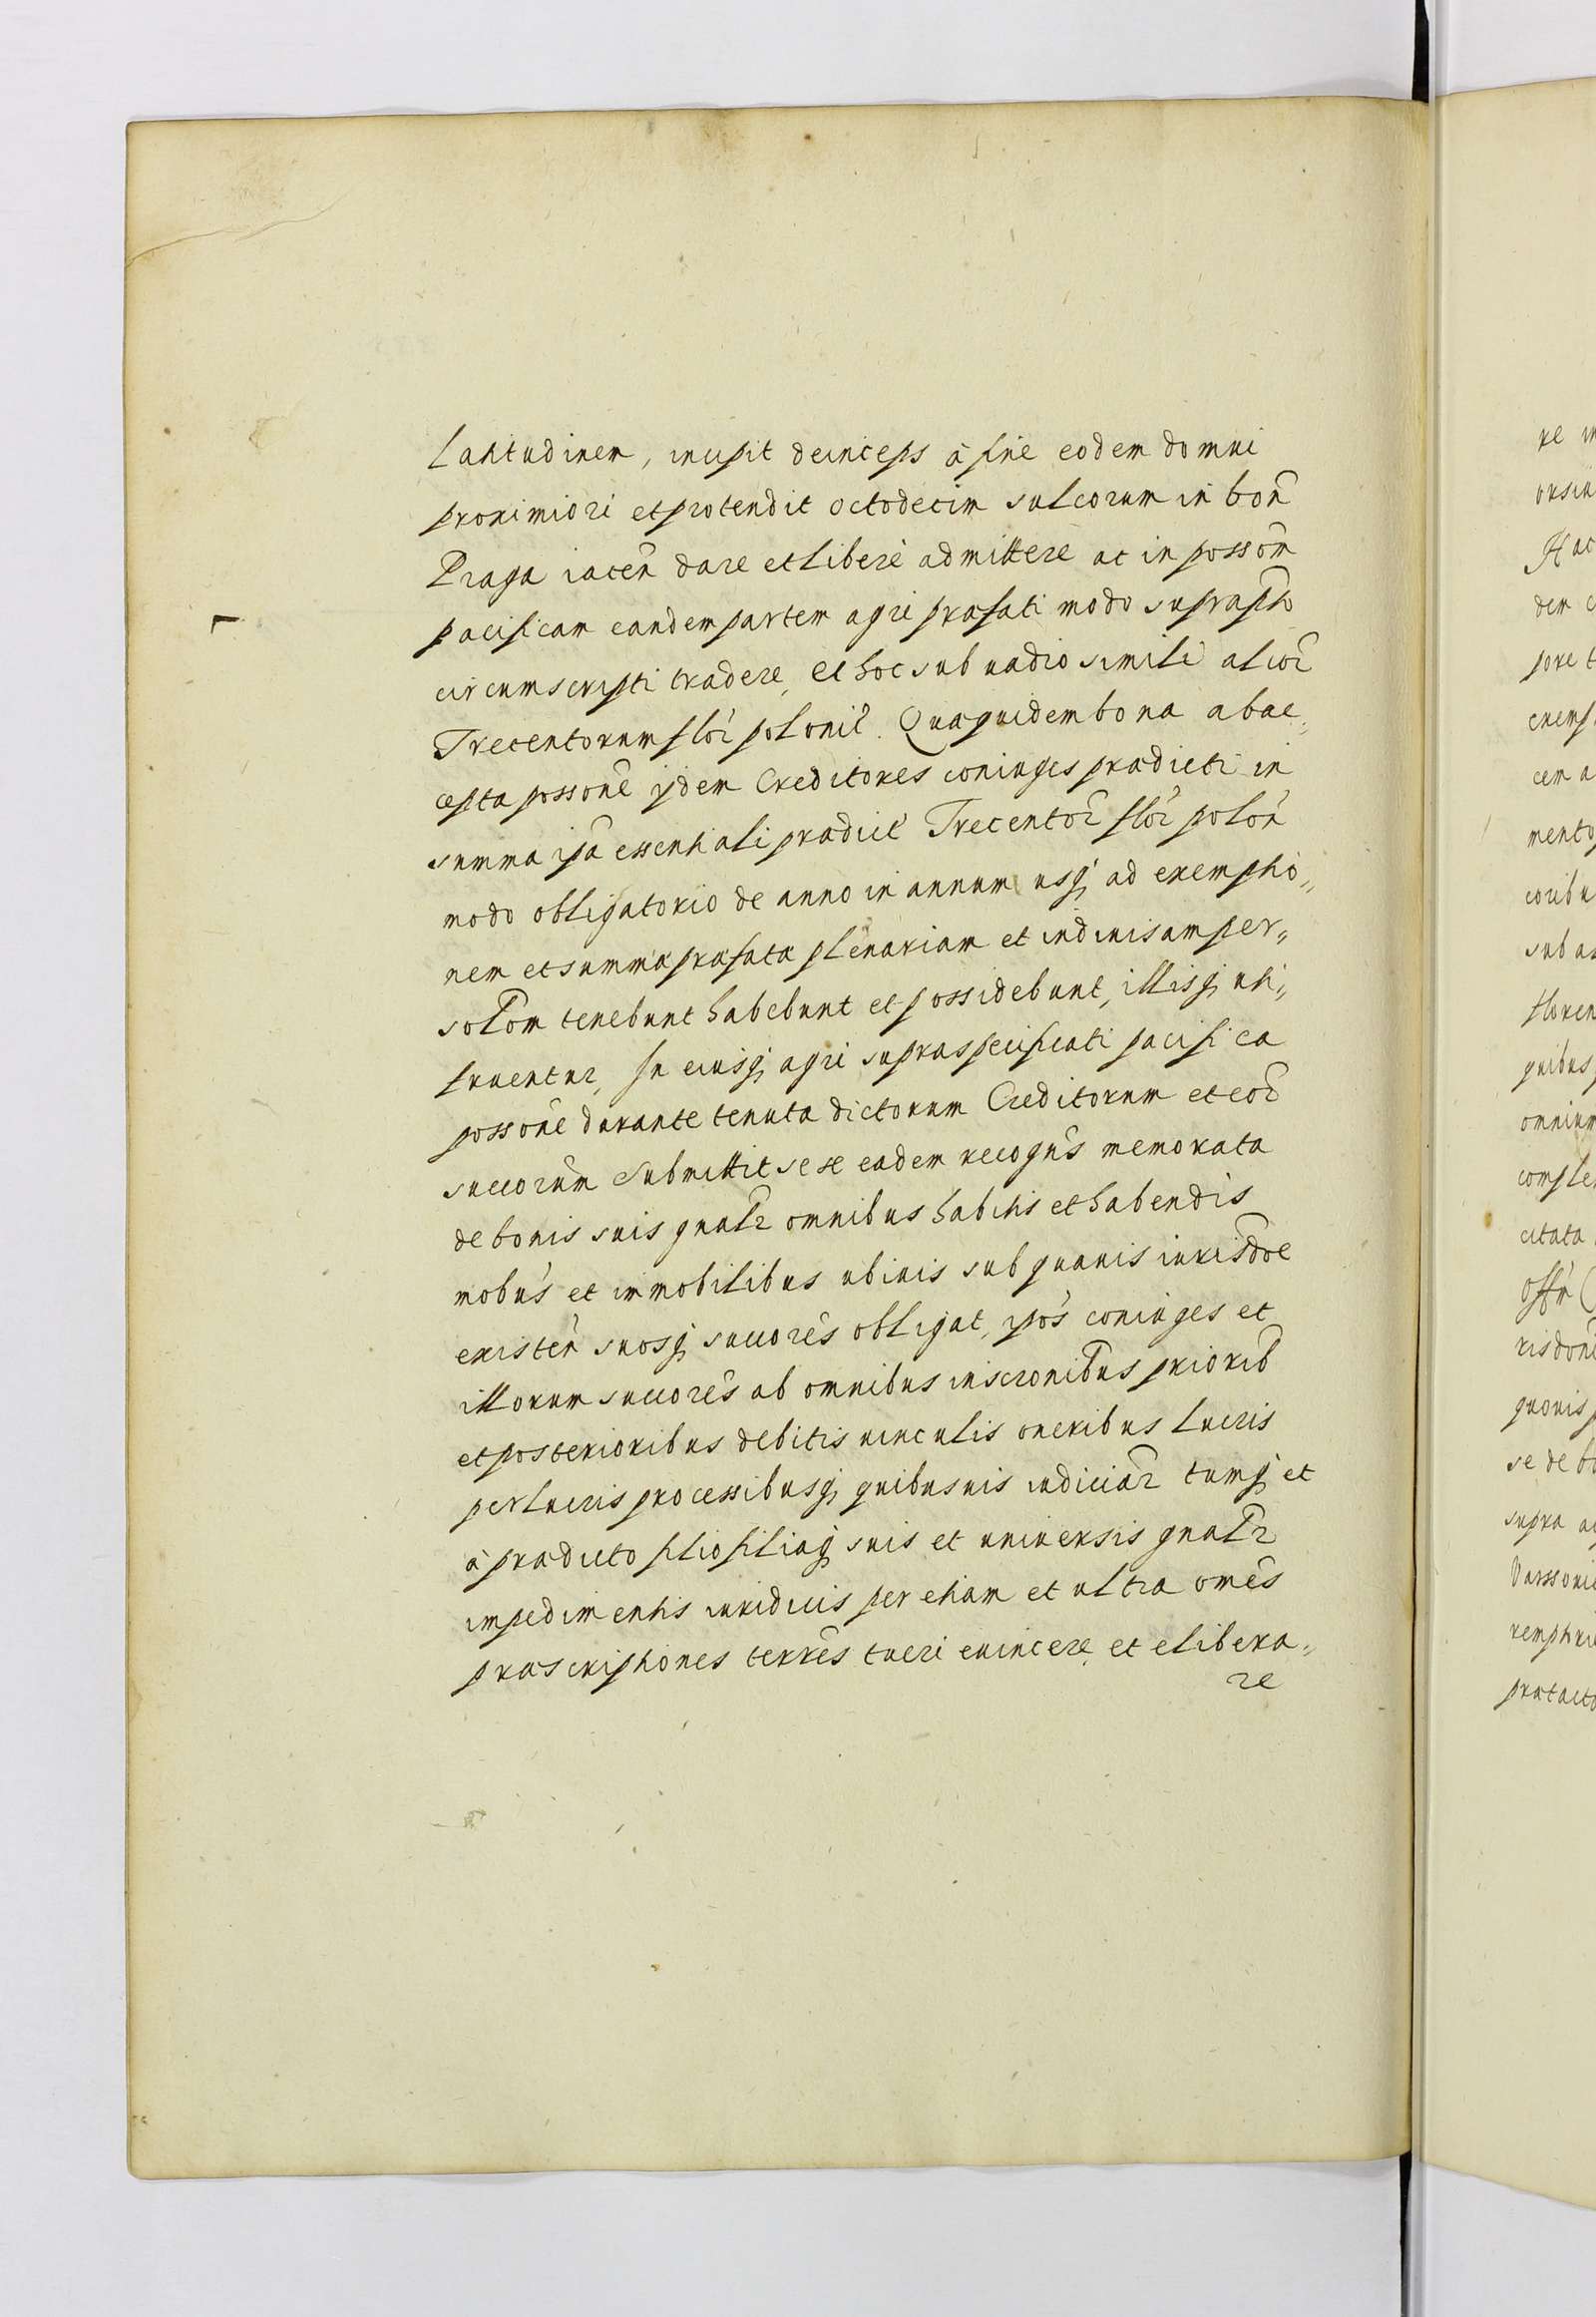 Latitudinem, incipit deinceps à fine eodem domui
proximiori et protendit octodecim sulcorum in bon̄
Praga iacen̄ dare et liberè admittere ac in possōm
pacificam eandem partem agri præfati modo supraptō
circumscripti tradere, Et hoc sub uadio simili alior̄
Trecentorum flor̄ polonic̄. Quæquidem bona ab ac„
cepta possone ijdem Creditores coniuges prædicti in
summa ipā essentiali prædict̄ Trecentor̄ flor̄ polon̄
modo obligatorio de anno in annum usq; ad exemptio„
nem et summæ præfatæ plenariam et indiuisam per„
solōm tenebunt habebunt et possidebunt, illisq; uti„
fruentur, In cuiusq; agri supraspecificati pacifica
possone durante tenuta dictorum Creditorum et eor̄
succorum Submittit sese eadem recogns memorata
de bonis suis gnalr omnibus habitis et habendis
mobus et immobilibus ubiuis sub quauis iurisdoe
existen̄ suosq; succores obligat, ipos coniuges et
illorum succores ab omnibus inscronibus priorib
et posterioribus debitis uinculis oneribus lucris
perlucris processibusq; quibusuis iudiciar̄ tumq; et
à prædicto filio filiaq; suis et uniuersis gnalr
impedimentis iuridicis per etiam et ultra omēs
præscriptiones terres tueri euincere et elibera„
re